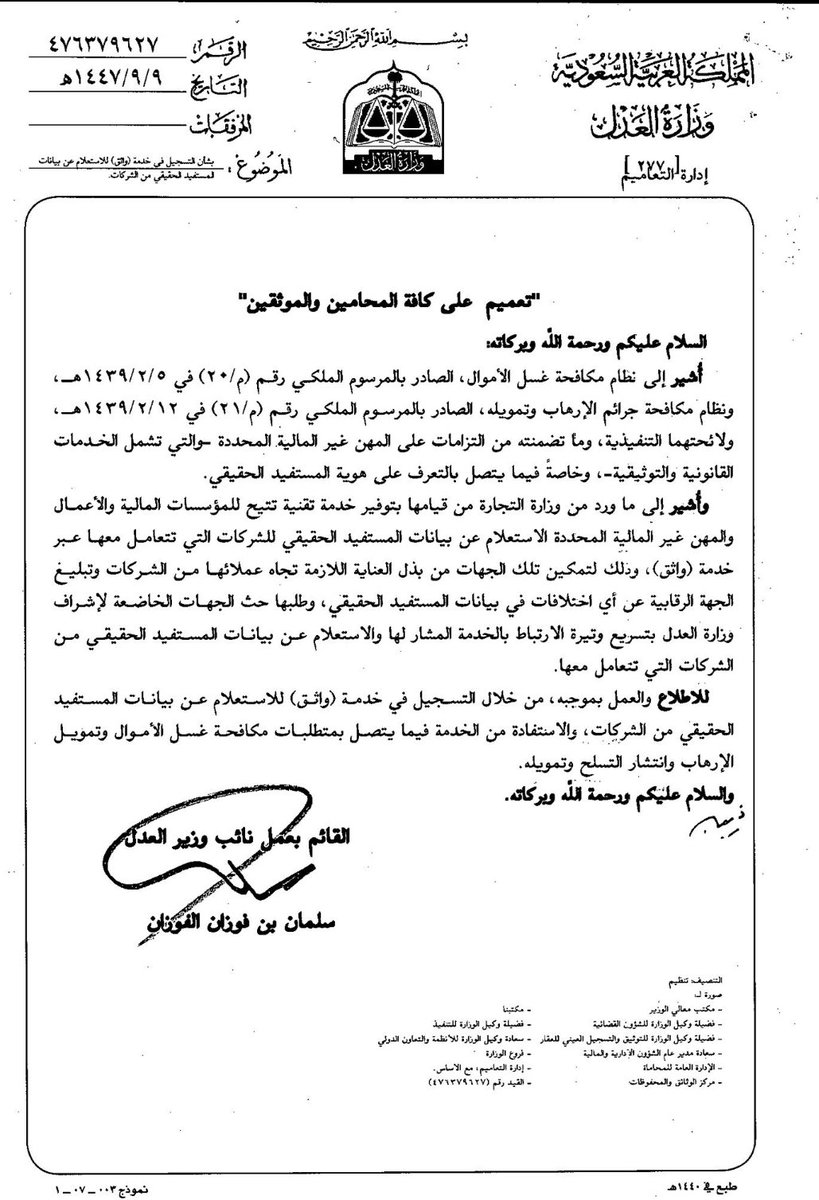 بسم الله الرحمن الرحيم
المملكة العربية السعودية
وزارة العدل
[٢٧٧]
إدارة التعاميم
وزارة العدل
الرقم ٤٧٦٣٧٩٦٢٧
التاريخ ١٤٤٧/٩/٩هـ
المرفقات
الموضوع : بشأن التسجيل في خدمة (واثق) للاستعلام عن بيانات
المستفيد الحقيقي من الشركات.
"تعميم على كافة المحامين والموثقين"
السلام عليكم ورحمة الله وبركاته:
أُشير إلى نظام مكافحة غسل الأموال، الصادر بالمرسوم الملكي رقم (م/٢٠) في ١٤٣٩/٢/٥هـ،
ونظام مكافحة جرائم الإرهاب وتمويله، الصادر بالمرسوم الملكي رقم (م/٢١) في ١٤٣٩/٢/١٢هـ،
ولائحتهما التنفيذية، وما تضمنته من التزامات على المهن غير المالية المحددة -والتي تشمل الخدمات
القانونية والتوثيقية-، وخاصةً فيما يتصل بالتعرف على هوية المستفيد الحقيقي.
وأُشير إلى ما ورد من وزارة التجارة من قيامها بتوفير خدمة تقنية تتيح للمؤسسات المالية والأعمال
والمهن غير المالية المحددة الاستعلام عن بيانات المستفيد الحقيقي للشركات التي تتعامل معها عبر
خدمة (واثق)، وذلك لتمكين تلك الجهات من بذل العناية اللازمة تجاه عملائها من الشركات وتبليغ
الجهة الرقابية عن أي اختلافات في بيانات المستفيد الحقيقي، وطلبها حث الجهات الخاضعة لإشراف
وزارة العدل بتسريع وتيرة الارتباط بالخدمة المشار لها والاستعلام عن بيانات المستفيد الحقيقي من
الشركات التي تتعامل معها.
للاطلاع والعمل بموجبه، من خلال التسجيل في خدمة (واثق) للاستعلام عن بيانات المستفيد
الحقيقي من الشركات، والاستفادة من الخدمة فيما يتصل بمتطلبات مكافحة غسل الأموال وتمويل
الإرهاب وانتشار التسلح وتمويله.
والسلام عليكم ورحمة الله وبركاته.
القائم بعمل نائب وزير العدل
سلمان بن فوزان الفوزان
التصنيف: تنظيم
صورة لـ:
- مكتب معالي الوزير
- فضيلة وكيل الوزارة للشؤون القضائية
- فضيلة وكيل الوزارة للتوثيق والتسجيل العيني للعقار
- سعادة مدير عام الشؤون الإدارية والمالية
- الإدارة العامة للمحاماة
- مركز الوثائق والمحفوظات
- مكتبنا
- فضيلة وكيل الوزارة للتنفيذ
- سعادة وكيل الوزارة للأنظمة والتعاون الدولي
- فروع الوزارة
- إدارة التعاميم، مع الأساس.
- القيد رقم (٤٧٦٣٧٩٦٢٧)
طبع في ١٤٤٠هـ
نموذج ٠٠٣ – ٠٧ – ١